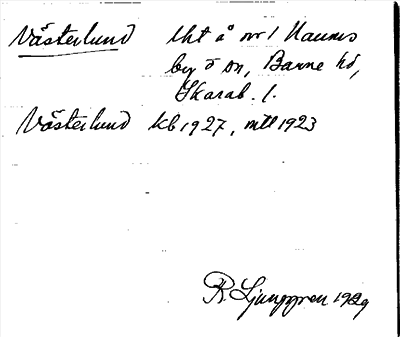 Västerlund lht å nr 1 Naums
by ö sn, Barne hd,
Skarab. l.
Västerlund kb 1927, mtl 1923
R. Ljunggren 1929